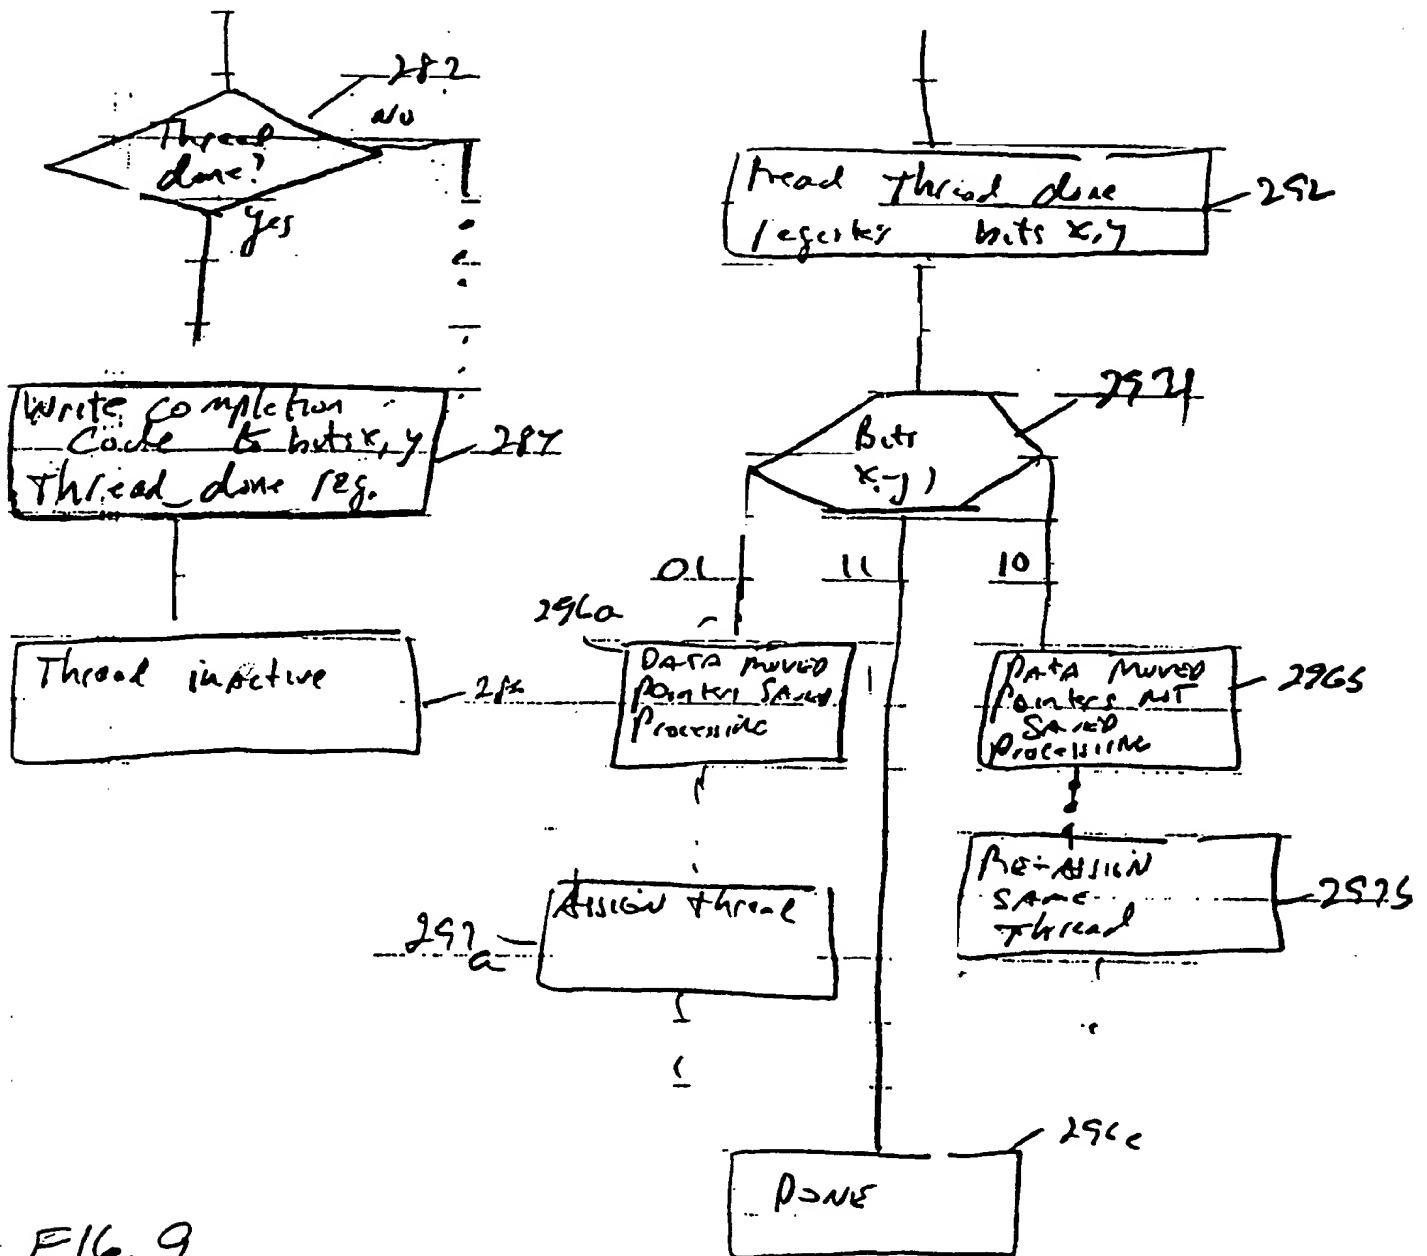 282
No
Thread
done?
yes
Write completion
Code to bits x, y
Thread_done reg.
284
Thread inactive
286
Read Thread done
register bits x, y
292
Bits
x, y
294
01
11
10
296a
DATA MOVED
Pointers SAVED
Processing
DATA MOVED
Pointers NOT
SAVED
Processing
296b
Assign thread
297
a
RE-ASSIGN
SAME
Thread
297b
296c
DONE
FIG. 9